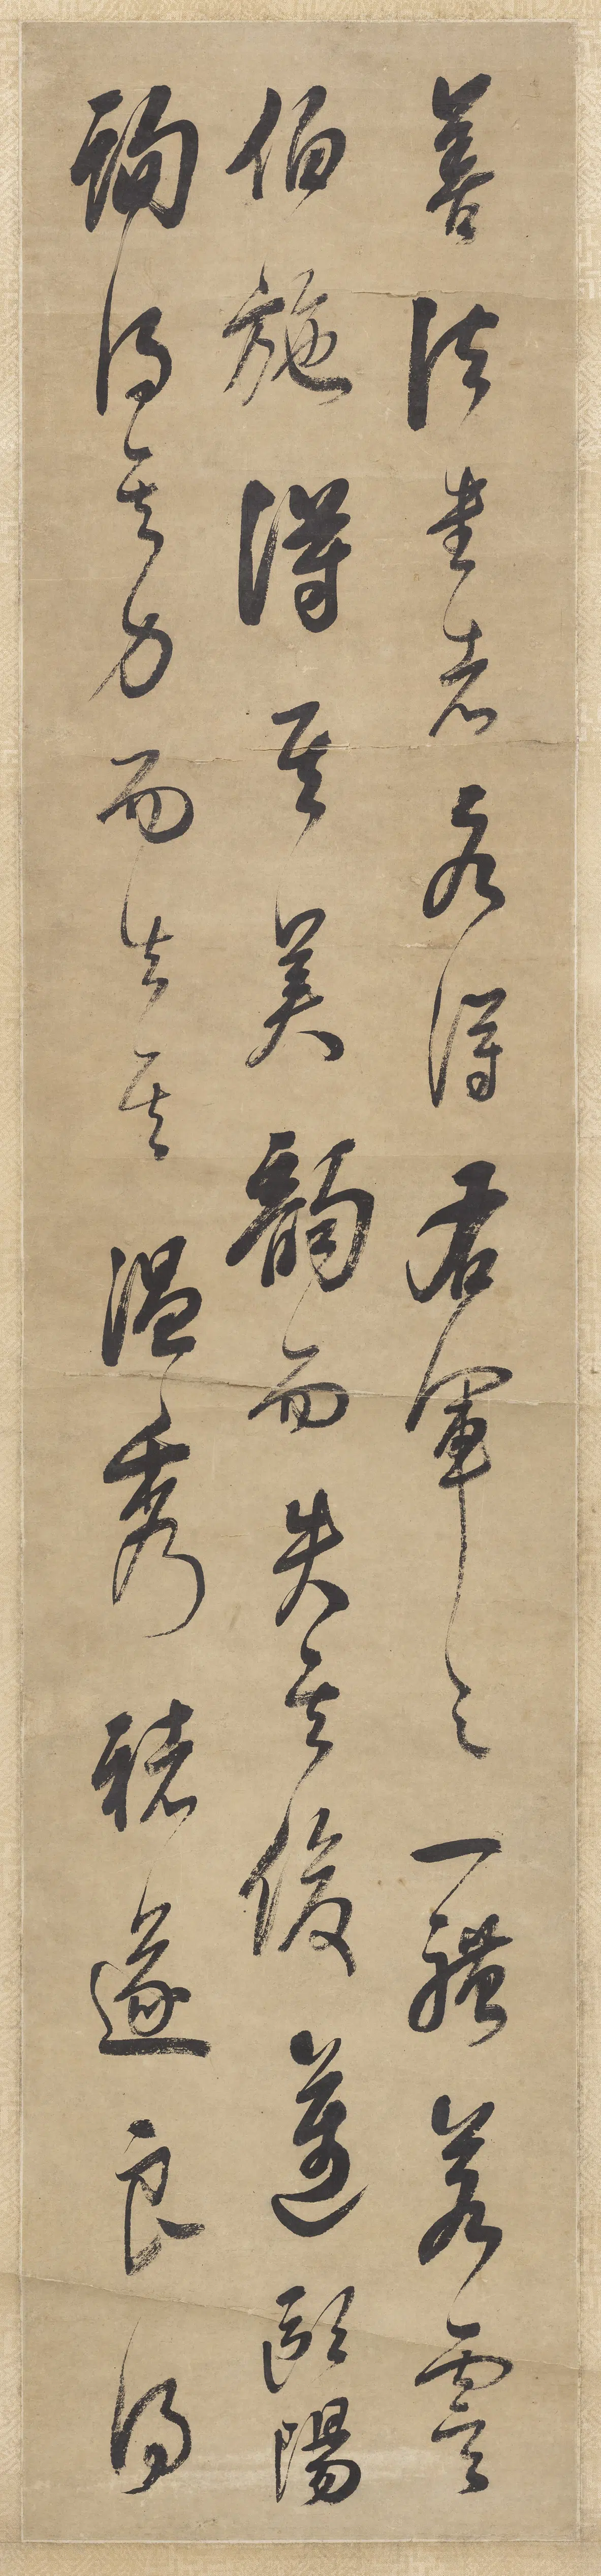 善法書者各得右軍之一體若虞
伯施得其美韻而失其俊邁歐陽
詢得其力而失其溫秀褚遂良得